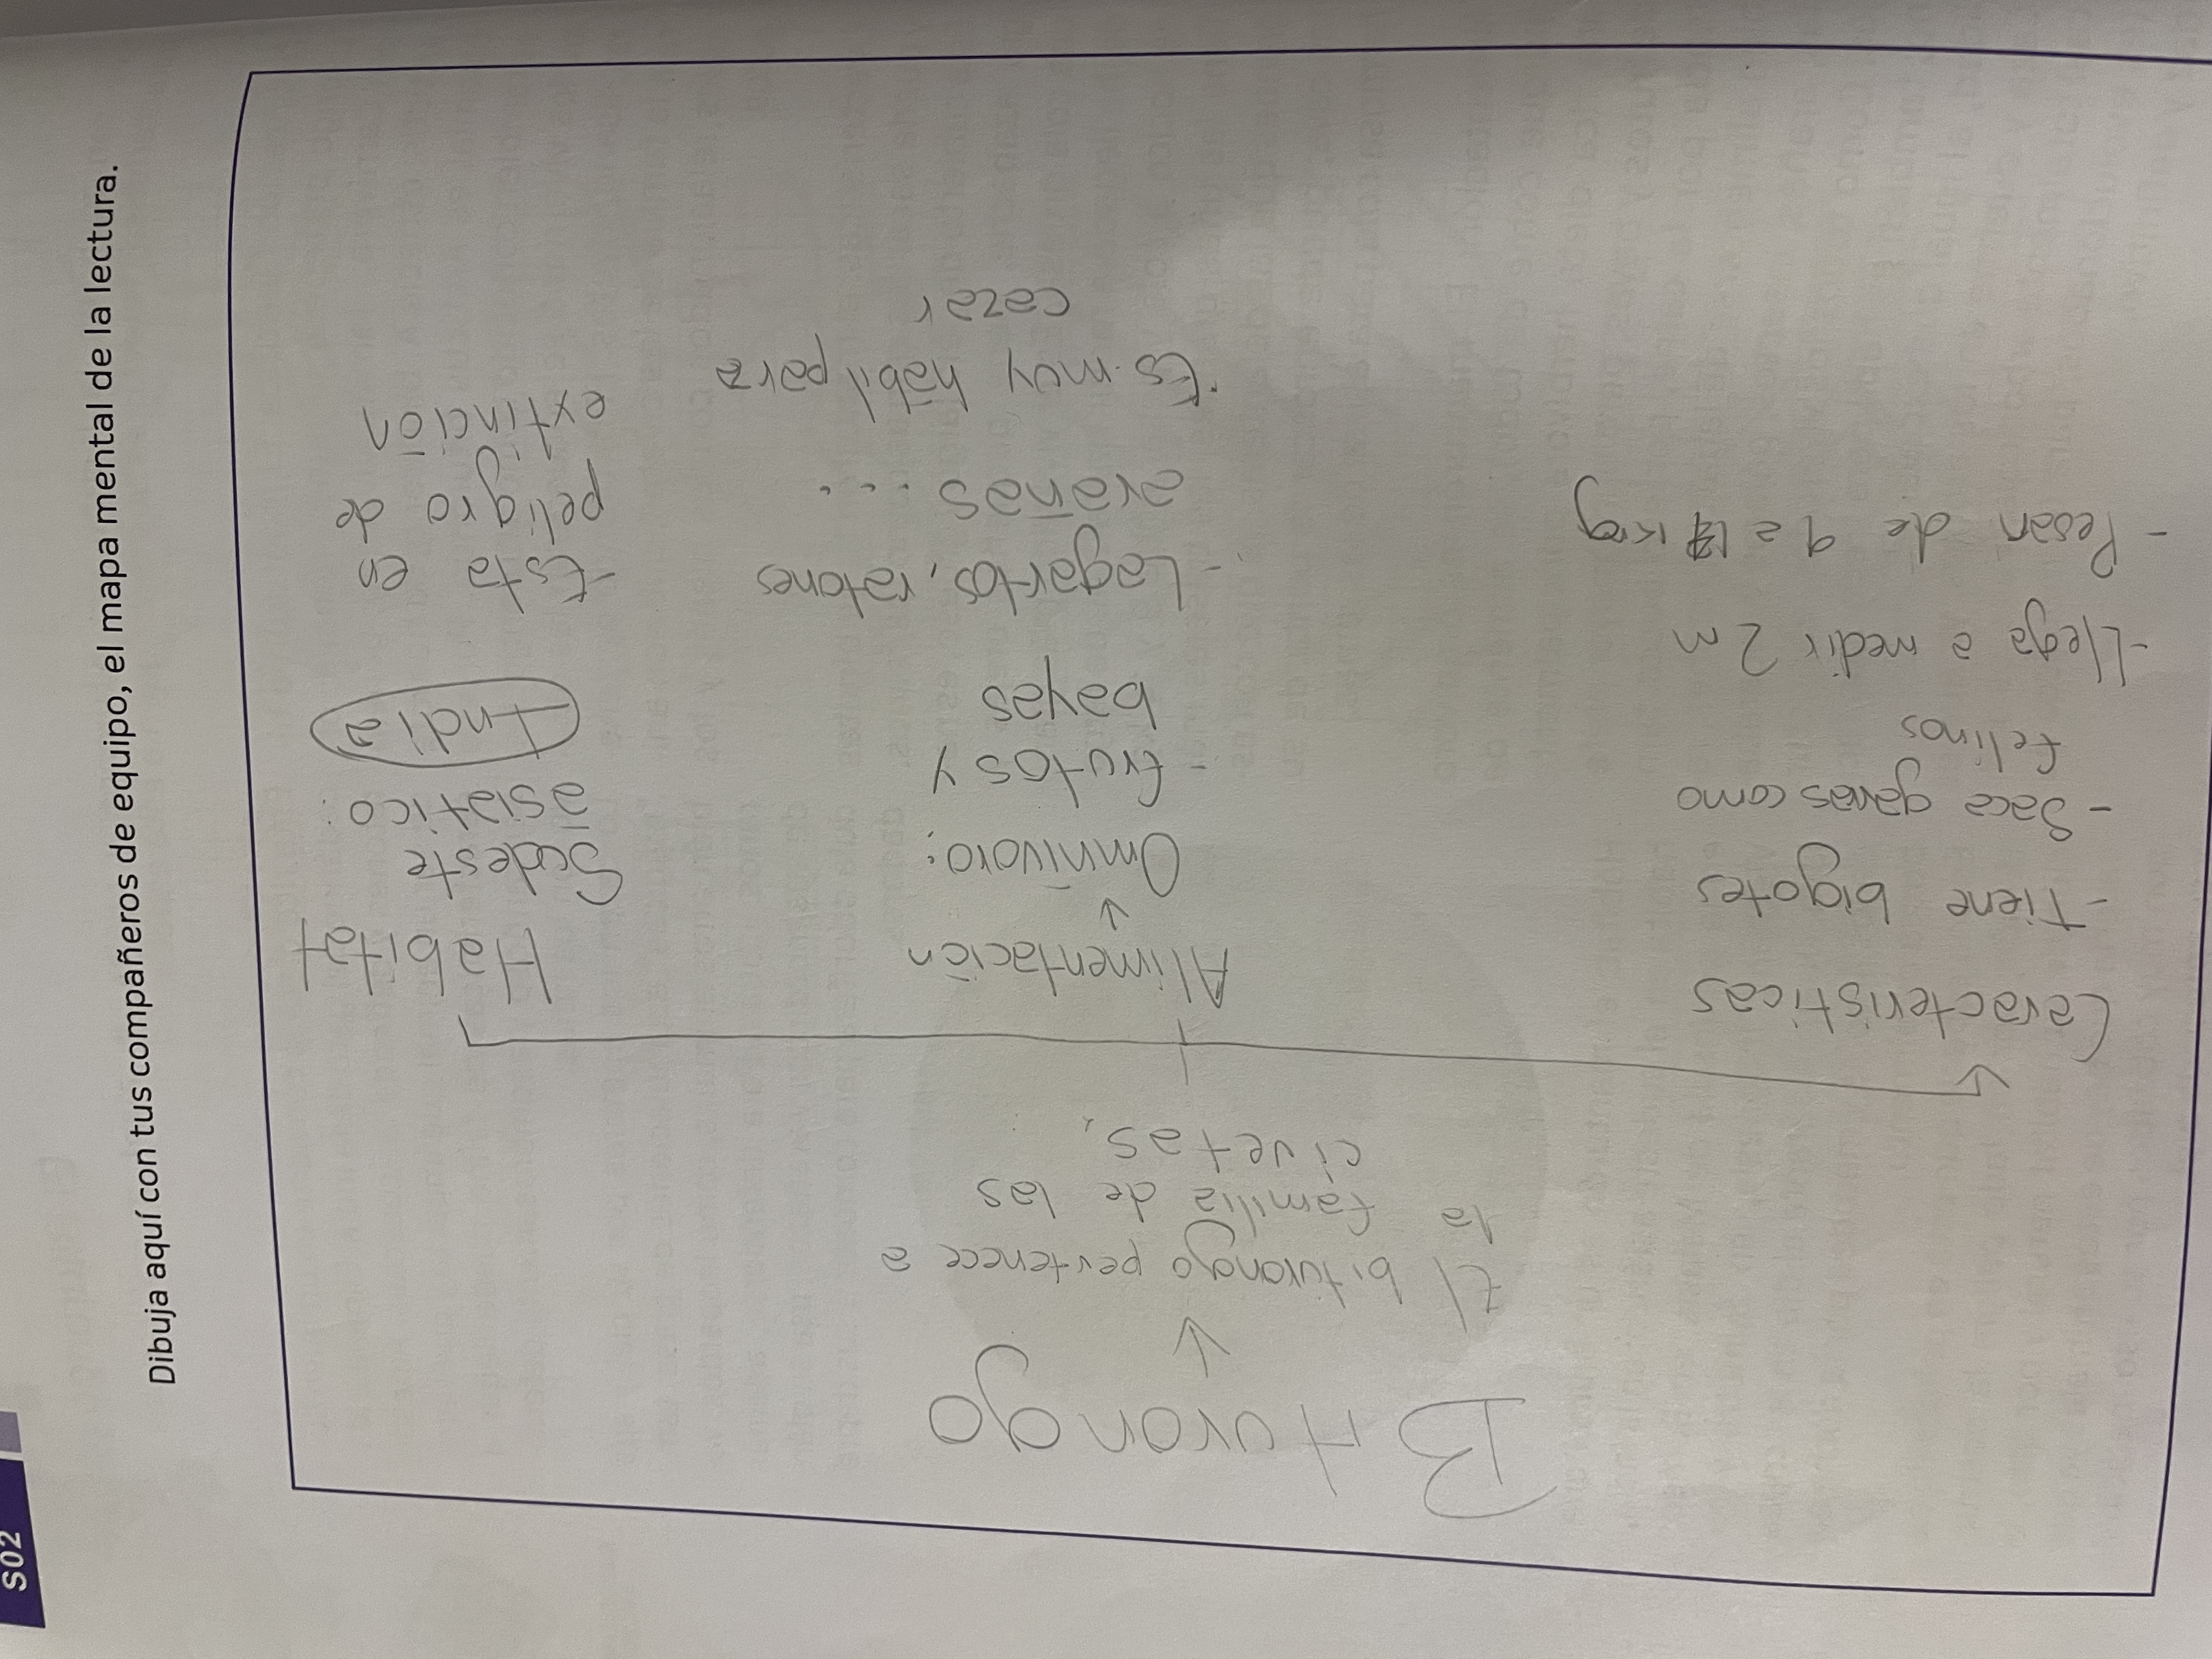 S02
Dibuja aquí con tus compañeros de equipo, el mapa mental de la lectura.
Biturongo
El biturongo pertenece a
la familia de las
civetas,
Características
- Tiene bigotes
- Saca garras como
felinos
- Llega a medir 2 m
- Pesan de 9 a kg
Alimentación
Omnívoro:
- frutos y
bayas
- Lagartos, ratones
arañas...
· Es muy hábil para
cazar
Habitat
Sudeste
asiático:
India
- Esta en
peligro de
extinción